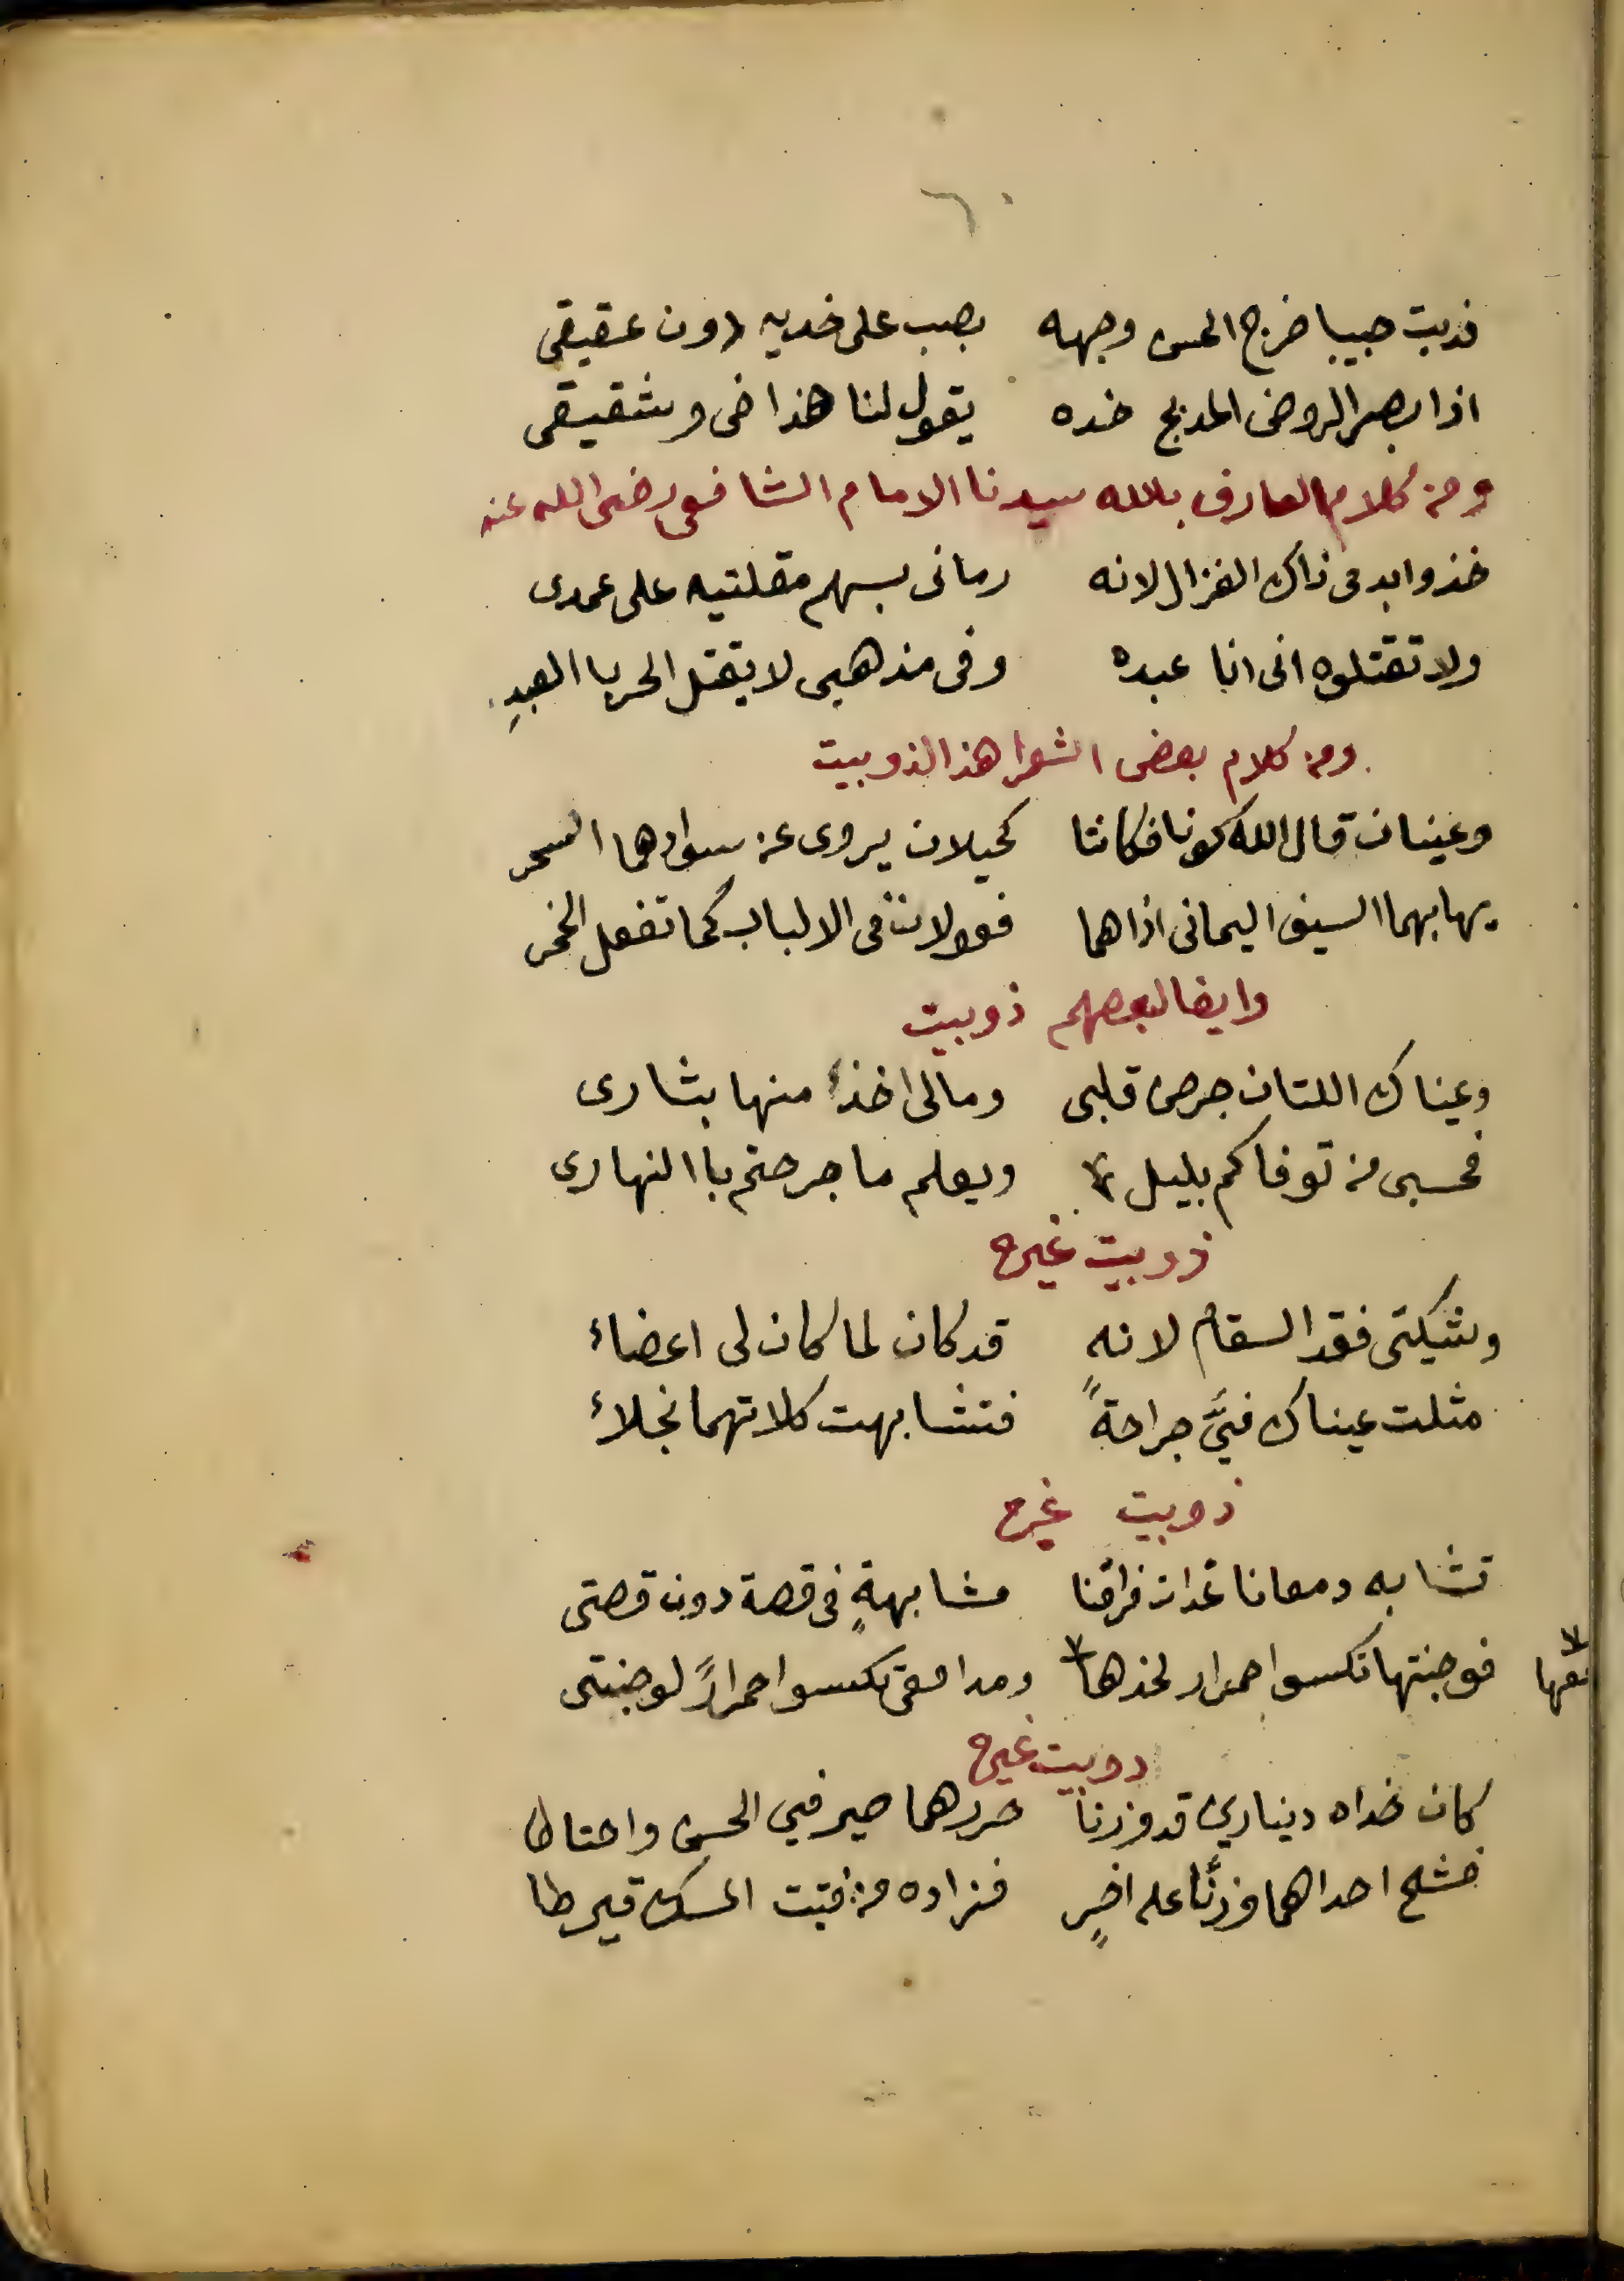 ٦٠
فديت حبيبا ضرج الحسن وجهه بصب على خديه دون عقيقي
اذا بصر الروض المدبج خده يقول لنا هذا خي وشقيقي
ومن كلام العارف بالله سيدنا الامام الشافعي رضى الله عنه
خذوا بدمى ذاك الغزال لانه رمانى بسهم مقلتيه على عمدى
ولا تقتلوه انى انا عبده وفى مذهبى لا يقتل الحر با العبدِ
ومن كلام بعض الشعرا هذا الذوبيت
وعينان قال الله كونا فكانتا كحيلان يروى عن سوادهما السحر
يهابهما السيف اليمانى اذا هما فعولان فى الالباب كما تفعل الخمر
وايضا لبعضهم ذوبيت
وعيناك اللتان جرحن قلبى ومالى اخذٌ منها بثارى
فحسبى من توفاكم بليل ويعلم ما جرحتم باالنهارى
ذوبيت غيره
وشكيتى فقد السقام لانه قد كان لما كان لى اعضاء
مثلت عيناك فيَّ جراحةً فتشابهت كلاتهما نجلاء
ذوبيت غيره
تشابه دمعانا غدات فراقنا مشابهةٍ فى قصة دون قصتى
فوجنتها تكسوا احمرار لخذها ومدامعى تكسوا احمرارً لوجنتى
معها
دوبيت غيره
كان خداه ديناري قد وزنا حررهما صيرفي الحسن واحتاطا
فشح احداهما وزنًا عله اخرٍ فزاده من فتت المسك قيرطا